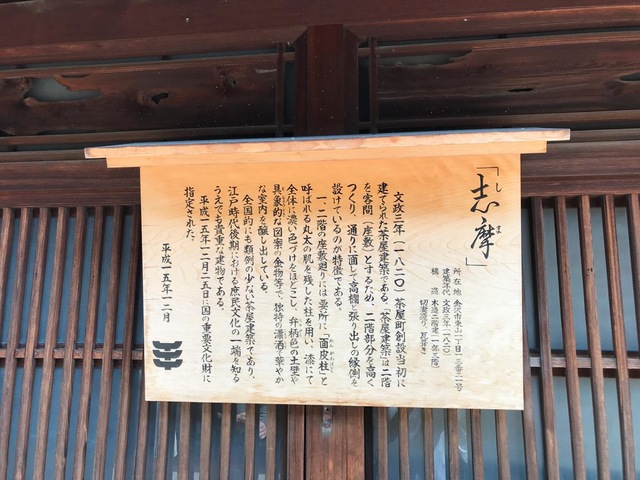 「志摩」
しま
所在地 金沢市東山一丁目一三番二一号
建築年代 文政三年(一八二〇)
構造 木造二階建(一部三階)
切妻造り、瓦葺き
文政三年(一八二〇)茶屋町創設当初に
建てられた茶屋建築である。「茶屋建築」は二階
を客間(座敷)とするため、二階部分を高く
つくり、通りに面して高欄と張り出しの縁側を
設けているのが特徴である。
一、二階の座敷廻りには要所に「面皮柱」と
呼ばれる丸太の肌を残した柱を用い、漆にて
全体に濃い色づけをほどこし、弁柄色の土壁や
具象的な図案の金物等で、独特の瀟洒で華やか
な室内を醸し出している。
全国的にも類例の少ない茶屋建築であり、
江戸時代後期における庶民文化の一端を知る
うえでも貴重な建物である。
平成一五年一二月二五日に国の重要文化財に
指定された。
平成一五年一二月